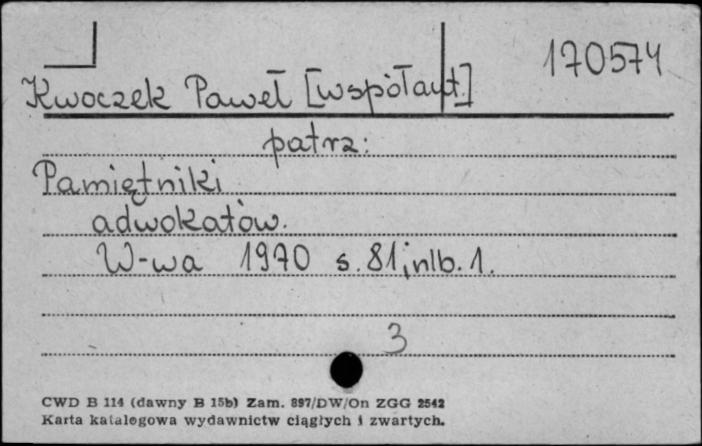 170574
Kwoczek Paweł [współaut.]
patrz:
Pamiętniki
adwokatów.
W-wa 1970 s. 81, nlb. 1.
3
CWD B 114 (dawny B 15b) Zam. 897/DW/On ZGG 2542
Karta katalogowa wydawnictw ciągłych i zwartych.